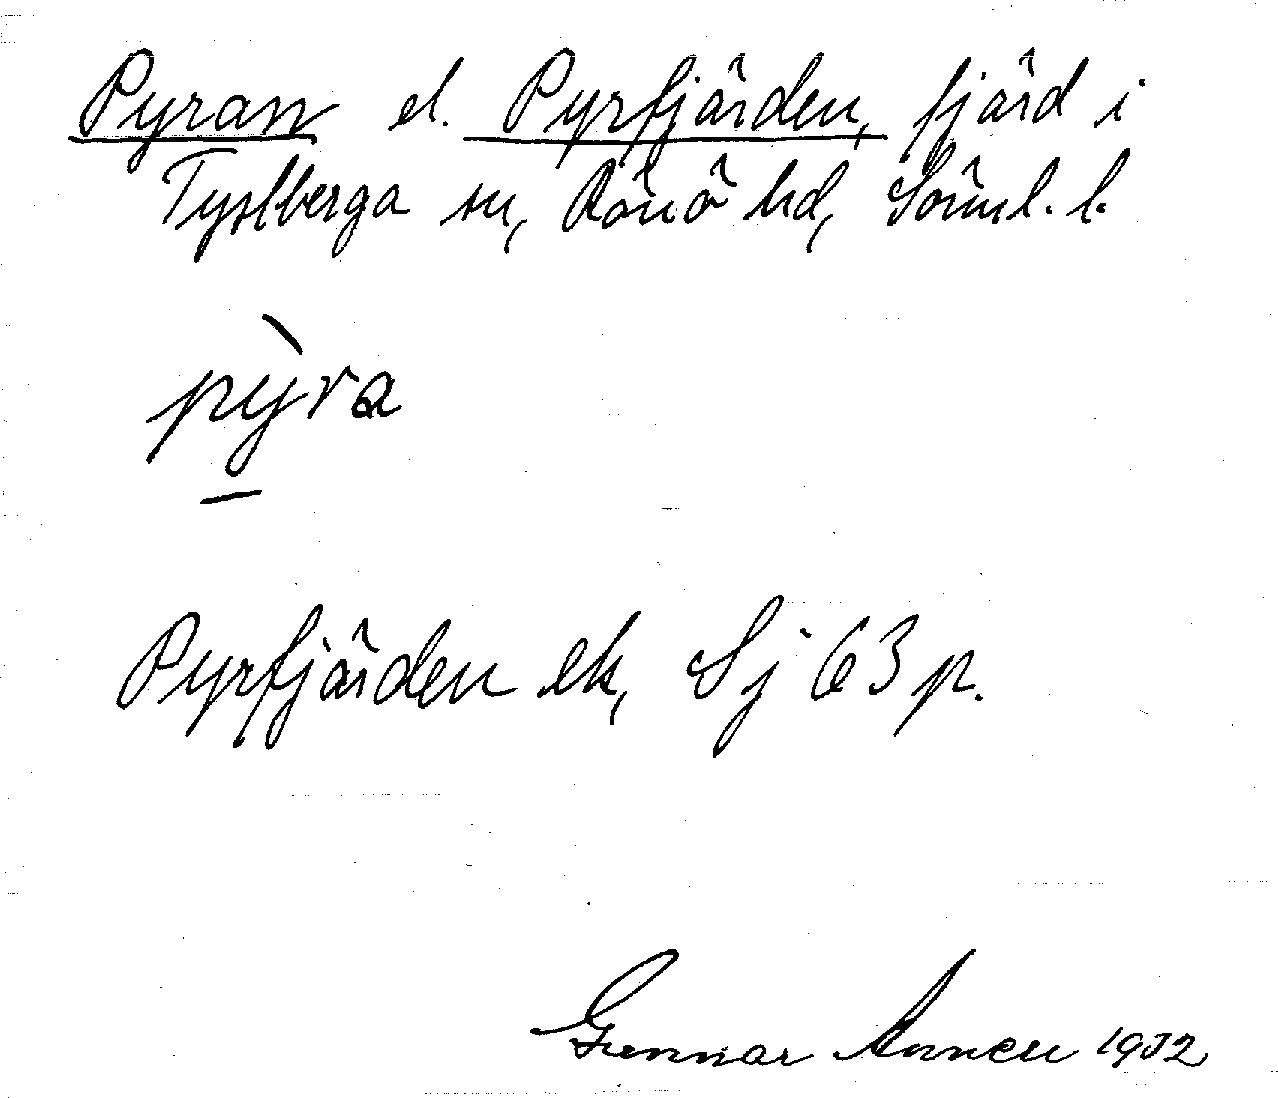 Pyran el. Pyrfjärden, fjärd i
Tystberga sn, Rönö hd, Sörml. l.
pỳra
Pyrfjärden ek, Sj 63 p.
Gunnar 1932